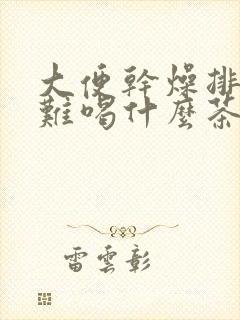 大便幹燥排
難喝什麼茶
雷雲彰